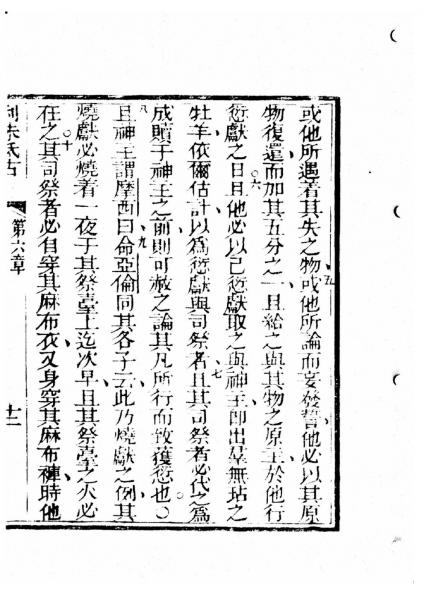 或他所遇着其失之物或他所論而妄發誓他必以其原
物復還而加其五分之一且給之與其物之原主於他行
愆獻之日且他必以己愆獻取之與神主即出羣無玷之
牡羊依爾估計以為愆獻與司祭者且其司祭者必代之為
成贖于神主之前則可赦之論其凡所行而致獲愆也〇
且神主謂摩西曰命亞倫同其各子云此乃燒獻之例其
燒獻必燒着一夜于其祭臺上迄次早且其祭臺之火必
在之其司祭者必自穿其麻布衣又身穿其麻布褲時他
利未氏古
第六章
十二
五
六
七
八
九
十